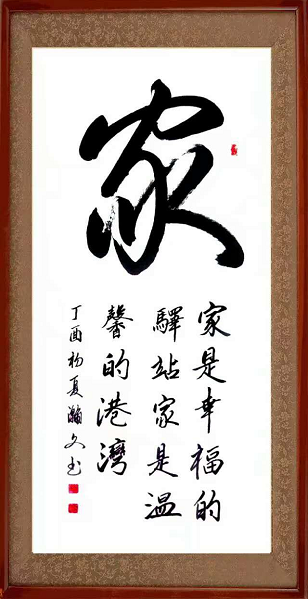 家
家是幸福的
驛站家是温
馨的港灣
丁酉初夏瀚文书